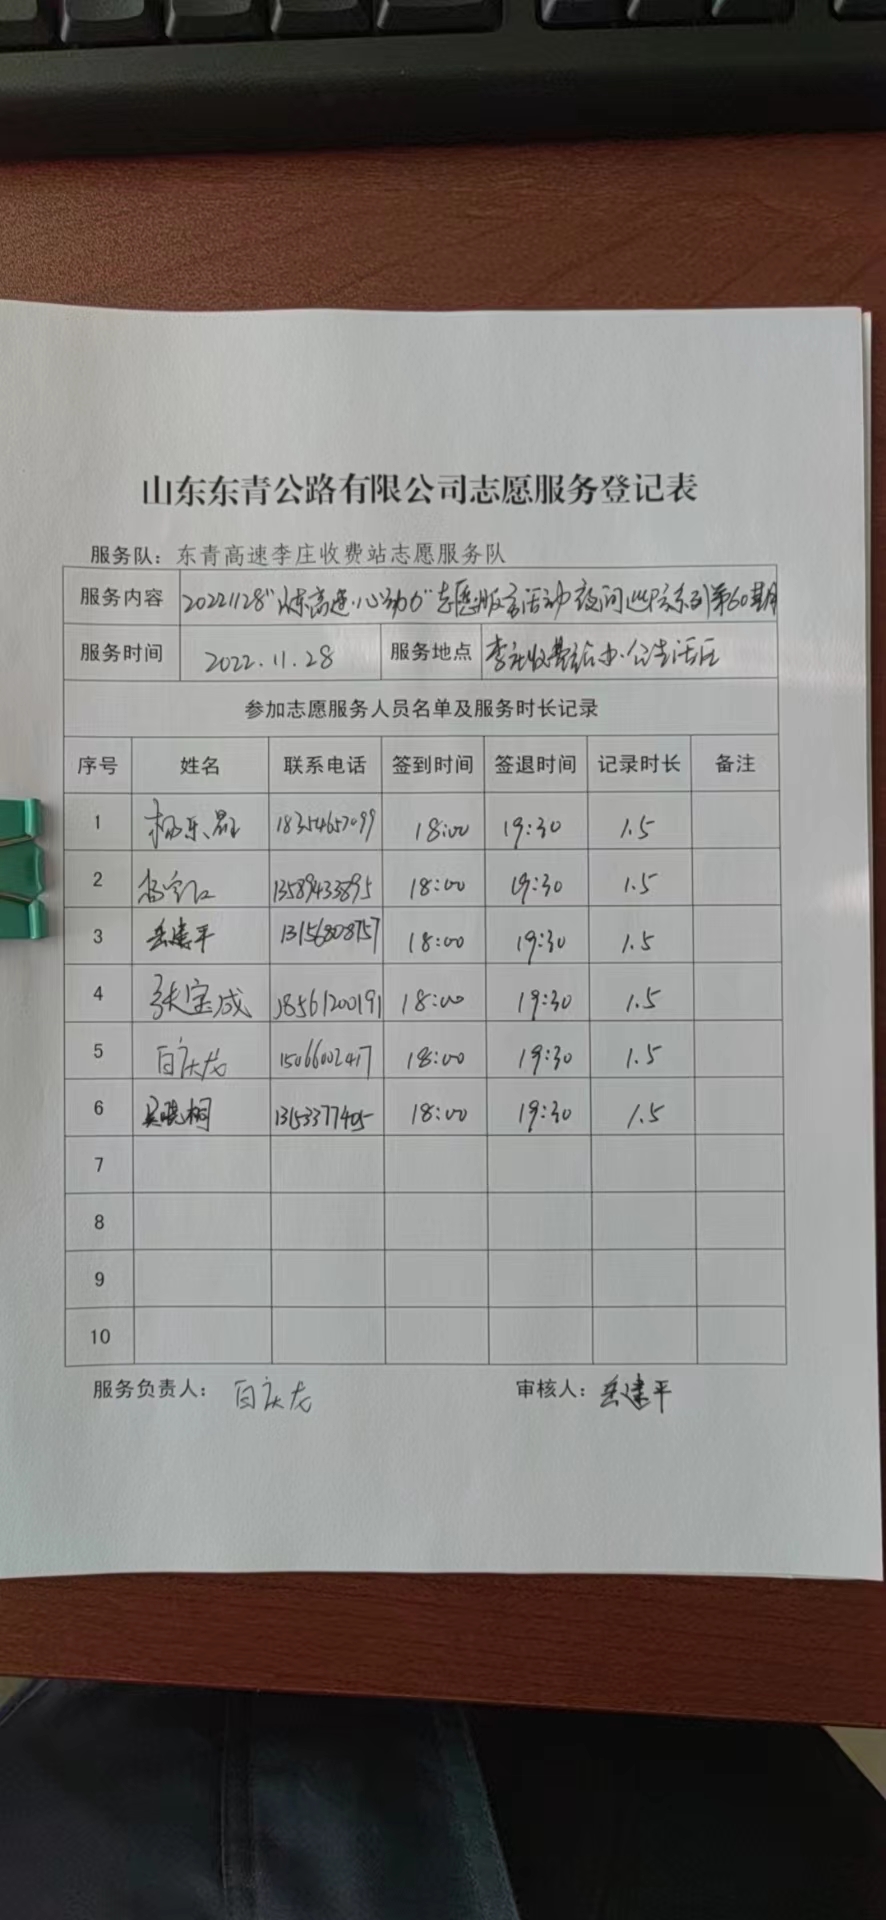 山东东青公路有限公司志愿服务登记表
服务队：东青高速李庄收费站志愿服务队
服务内容 20221128"山东高速·心动力"志愿服务活动 夜间巡护系列第60期
服务时间 2022.11.28 服务地点 李庄收费站办公生活区
参加志愿服务人员名单及服务时长记录
序号 姓名 联系电话 签到时间 签退时间 记录时长 备注
1 18354657099 18:00 19:30 1.5
2 13589433895 18:00 19:30 1.5
3 岳建平 13156808757 18:00 19:30 1.5
4 张宝成 18561200191 18:00 19:30 1.5
5 白庆龙 15066002417 18:00 19:30 1.5
6 吴晓桐 13153377405 18:00 19:30 1.5
7
8
9
10
服务负责人：白庆龙 审核人：岳建平